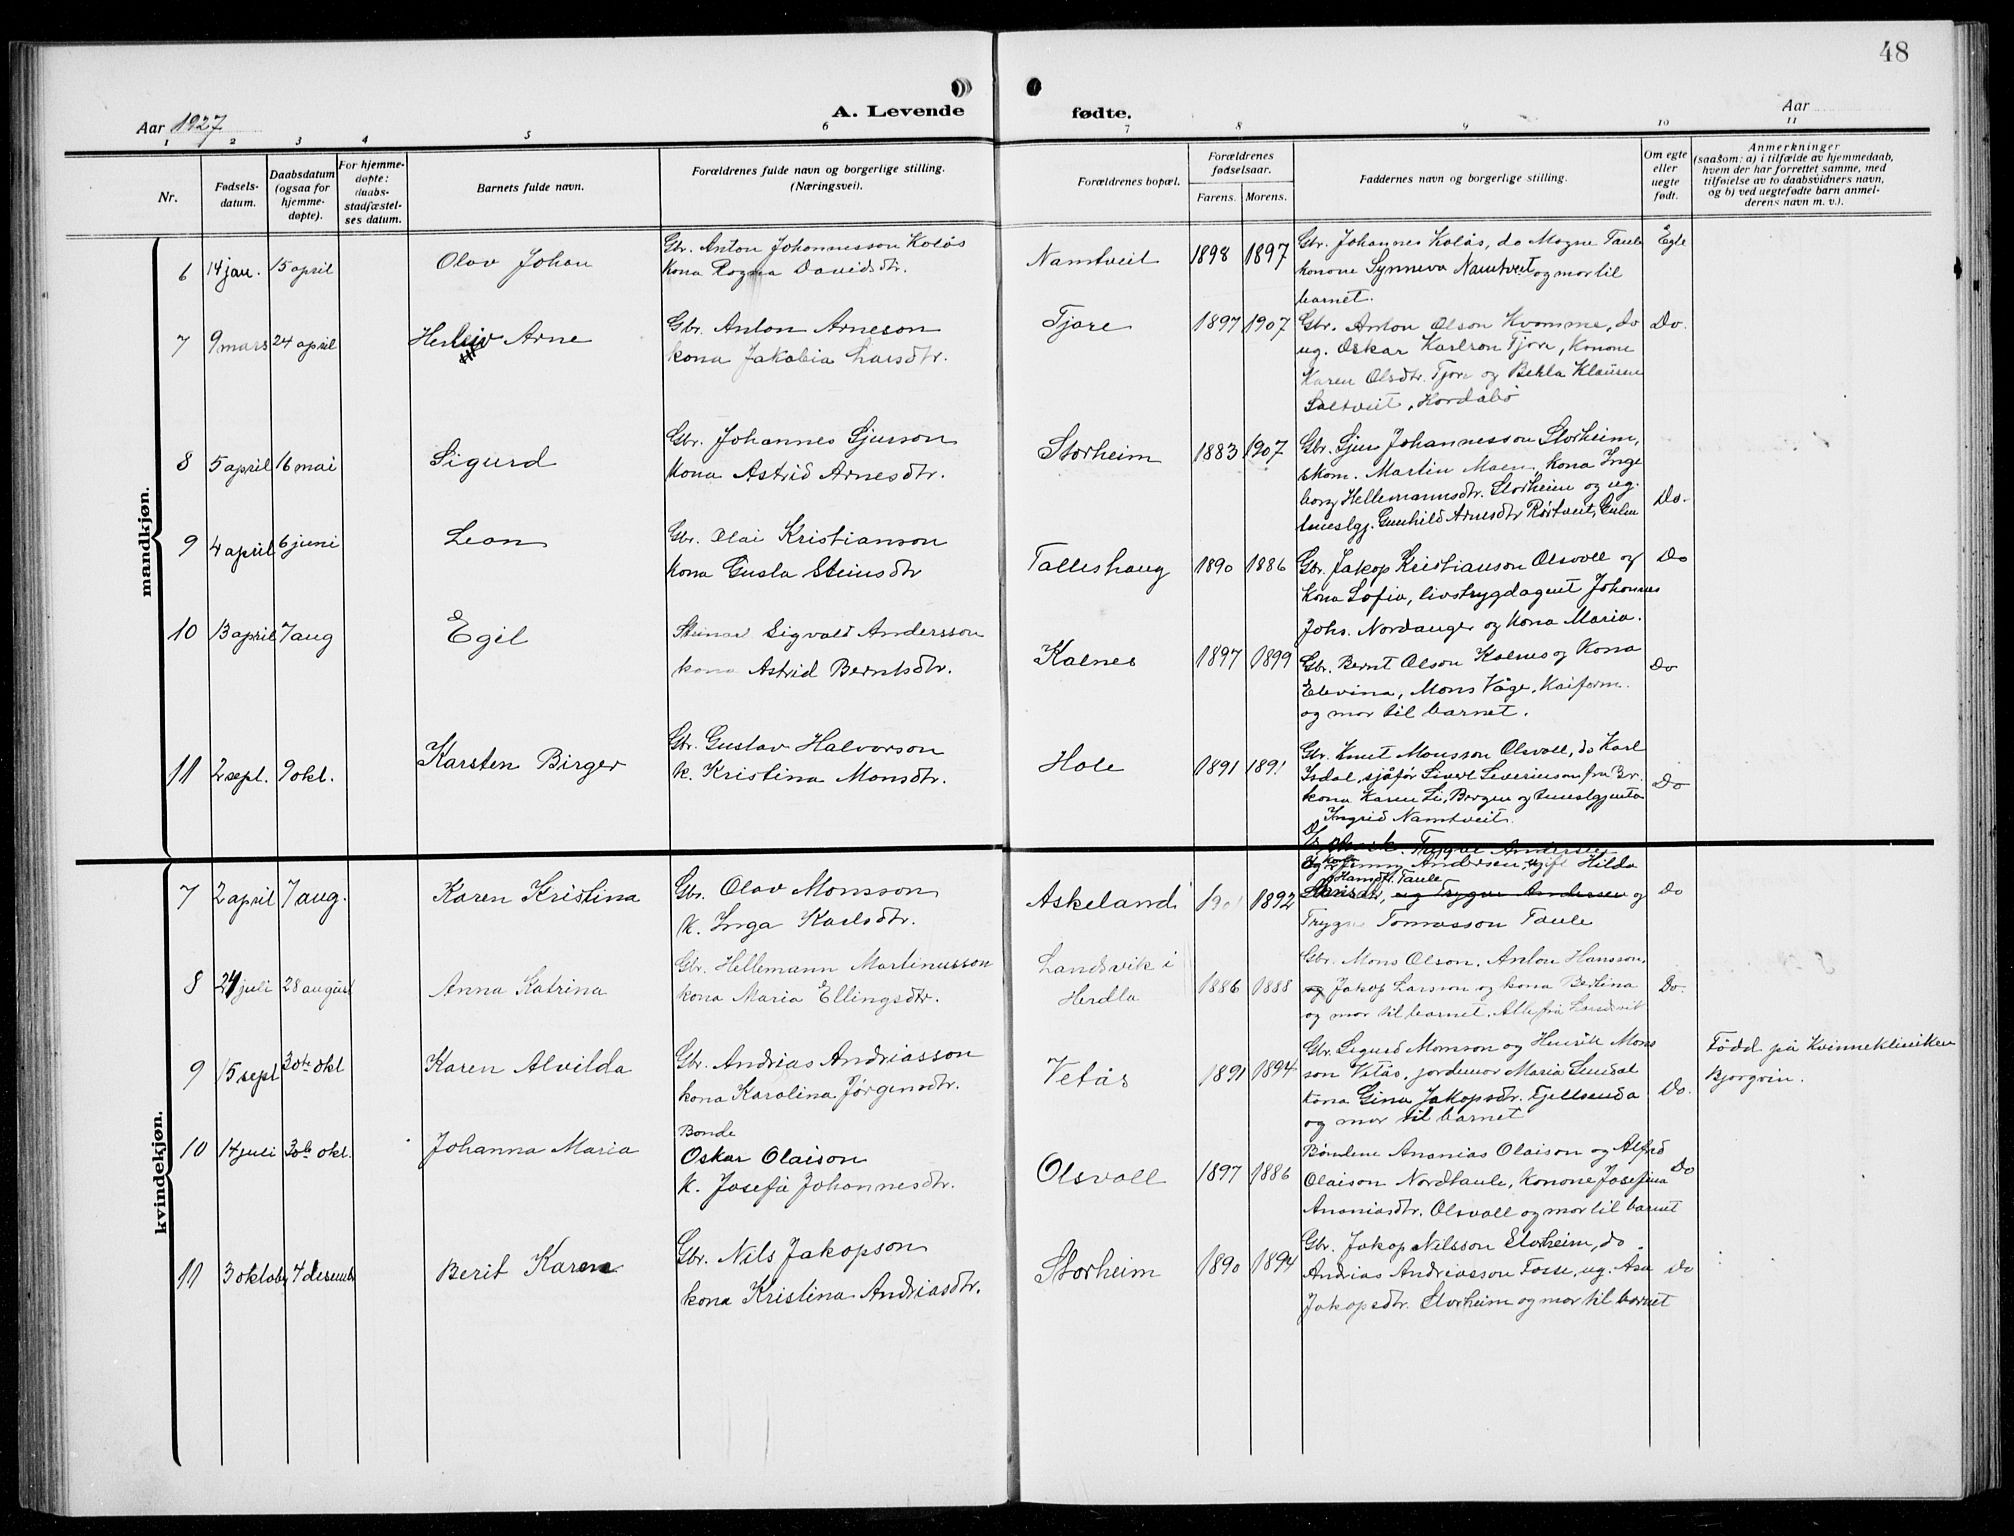 48
Aar 1927
A. Levende
fødte.
Aar
1 2 3 4 5 6 7 8 9 10 11
Nr.
Fødsels-
datum.
Daabsdatum
(ogsaa for
hjemme-
døpte).
For hjemme-
døpte:
daabs-
stadfæstel-
ses datum.
Barnets fulde navn.
Forældrenes fulde navn og borgerlige stilling.
(Næringsvei).
Forældrenes bopæl.
Forældrenes
fødselsaar.
Farens. Morens.
Faddernes navn og borgerlige stilling.
Om egte
eller
uegte
født.
Anmerkninger
(saasom: a) i tilfælde av hjemmedaab,
hvem der har forrettet samme, med
tilføielse av to daabsvidners navn,
og b) ved uegtefødte barn anmel-
derens navn m. v.).
mandkjøn.
6 14 jan. 15 april Olav Johan
Gbr. Anton Johannesson Kolås
kona Ragna Davidsdtr.
Namtveit 1898 1897
Gbr. Johannes Kolås, do Magne Taule
konone Synneva Namtveit og mor til
barnet.
Egte
7 9 mars 24 april Herleiv Arne
Gbr. Anton Arneson
kona Jakobia Larsdtr.
Tjore 1897 1907
Gbr. Anton Olson Kvamme, do
ug. Oskar Karlson Tjore, konone
Karen Olsdtr. Tjore og Klausen
Saltveit, Hordabø
Do.
8 5 april 16 mai Sigurd
Gbr. Johannes Sjurson
kona Astrid Arnesdtr.
Storheim 1883 1907
Gbr. Sjur Johannesson Storheim,
skom. Martin Moen, kona Inge
borg Hellemannsdtr. Storheim og ug.
Gunhild Arnesdtr Røstveit,
Do.
9 4 april 6 juni Leon
Gbr. Olai Kristianson
kona Gusta Steinsdtr
Talleshaug 1890 1886
Gbr. Jakop Kristianson Olsvoll og
kona Sofia, livstrygdagent Johannes
Johs. Nordanger og kona Maria.
Do
10 13 april 7 aug Egil
Sigvald Andersson
kona Astrid Berntsdtr.
Kalnes 1897 1899
Gbr. Bernt Olson Kalnes og kona
Elevina, Mons Våge,
og mor til barnet.
Do
11 2 sept. 9 okt. Karsten Birger
Gbr. Gustav Halvorson
k. Kristina Monsdtr.
Hole 1891 1891
Gbr. Knut Monsson Olsvoll, do Karl
Isdal, sjåfør Sivert Severinson, fra Br.
kona Karen Li, Bergen og tenestgjenta
Ingrid Namtveit.
Do
kvindekjøn.
7 2 april 7 aug. Karen Kristina
Gbr. Olav Monsson
k. Inga Karlsdtr.
Askeland 1892
Trygve Andersen
Andersen, ugift Hilda
Taule
og Trygve Andersen og
Trygve Tomasson Taule
Do
8 24 juli 28 august Anna Katrina
Gbr. Hellemann Martinusson
kona Maria Ellingsdtr.
Landsvik i
Herdla
1886 1888
Gbr. Mons Olson, Anton Hansson,
og Jakop Larsson og kona Bertina
og mor til barnet. Alle frå Landsvik
Do.
9 15 sept 30te okt Karen Alvilda
Gbr. Andrias Andriasson
kona Karolina Jørgensdtr.
Vetås 1891 1894
Gbr. Sigurd Monson og Henrik Mons
son Vetås, jordmor Maria Sundal
kona Gina Jakopsdtr. Fjellsenda
og mor til barnet
Do.
Fødd på Kvinneklinikken
Bjorgvin.
10 14 juli 30te okt. Johanna Maria
Bonde
Oskar Olaison
k. Josefie Johannesdtr.
Olsvoll 1897 1886
Bøndene Ananias Olaison og Alfred
Olaison Nordtaule, konone Josefina
Ananiasdtr. Olsvoll og mor til barnet
Do
11 3 oktober 4 desemb. Berit Karen
Gbr. Nils Jakopson
kona Kristina Andriasdtr.
Storheim 1890 1894
Gbr. Jakop Nilsson Storheim, do.
Andrias Andriasson Fosse, ug. Åsa
Jakopsdtr. Storheim og mor til barnet
Do